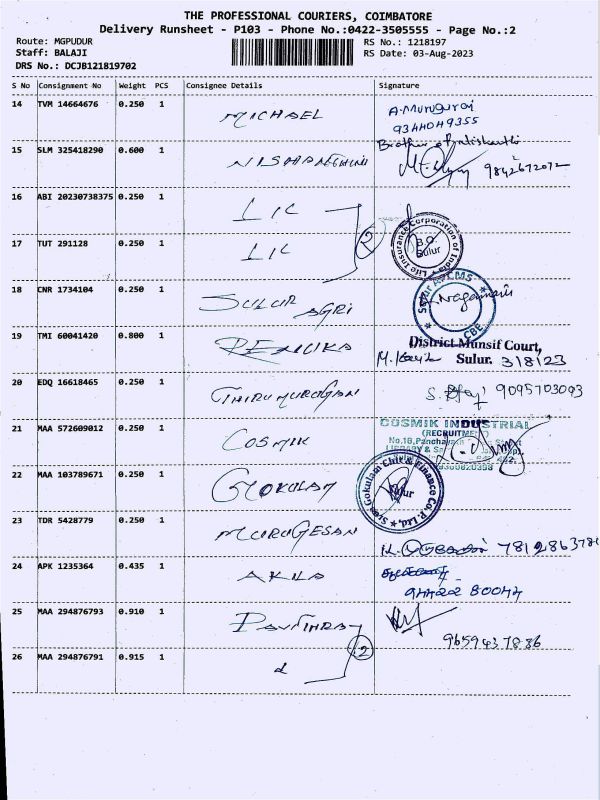 THE PROFESSIONAL COURIERS, COIMBATORE
Delivery Runsheet - P103 - Phone No.:0422-3505555 - Page No.:2
Route: MGPUDUR RS No.: 1218197
Staff: BALAJI RS Date: 03-Aug-2023
DRS No.: DCJB121819702
S No Consignment No Weight PCS Consignee Details Signature
14 TVM 14664676 0.250 1 MICHAEL A. Murugaraj
9344049355
Brother
15 SLM 325418290 0.600 1 9842672072
16 ABI 20230738375 0.250 1 LIC
Life Insurance Corporation of India
B.O.
Sulur
17 TUT 291128 0.250 1 LIC 2
18 CNR 1734104 0.250 1 SULUR AGRI
Sulur APCMS
CBE
19 TMI 60041420 0.800 1 RENUKA District Munsif Court,
Sulur. 3/8/23
20 EDQ 16618465 0.250 1 THIRUMUROGAN 9095703093
21 MAA 572609012 0.250 1 COSMIK COSMIK INDUSTRIAL
(RECRUITME
22 MAA 103789671 0.250 1 GOKULAM
Sree Gokulam Chit & Finance Co. P. Ltd.
Sulur
23 TDR 5428779 0.250 1 MURUGESAN 7812863781
24 APK 1235364 0.435 1 AKILA
25 MAA 294876793 0.910 1 9659437886
26 MAA 294876791 0.915 1 2